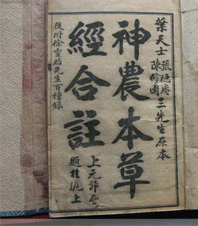 葉天士張隱庵陳修園三先生原本
神農本草
經合註
上元
滬上
後附徐靈胎先生百種錄